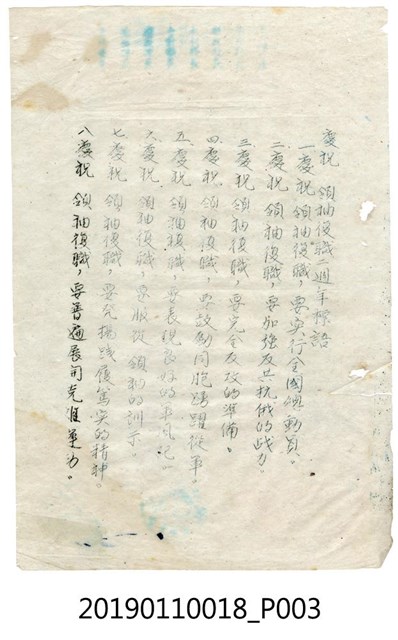 慶祝 領袖復職二週年標語
一慶祝 領袖復職，要实行全國總動員。
二慶祝 領袖復職，要加強反共抗俄的战力。
三慶祝 領袖復職，要完全反攻的準備。
四慶祝 領袖復職，要鼓勵同胞踴躍從軍。
五慶祝 領袖復職，要表現良好的
六慶祝 領袖復職，要服從 領袖的訓示。
七慶祝 領袖復職，要實踐履篤实的精神。
八慶祝 領袖復職，要普遍展開克难運动。
20190110018_P003